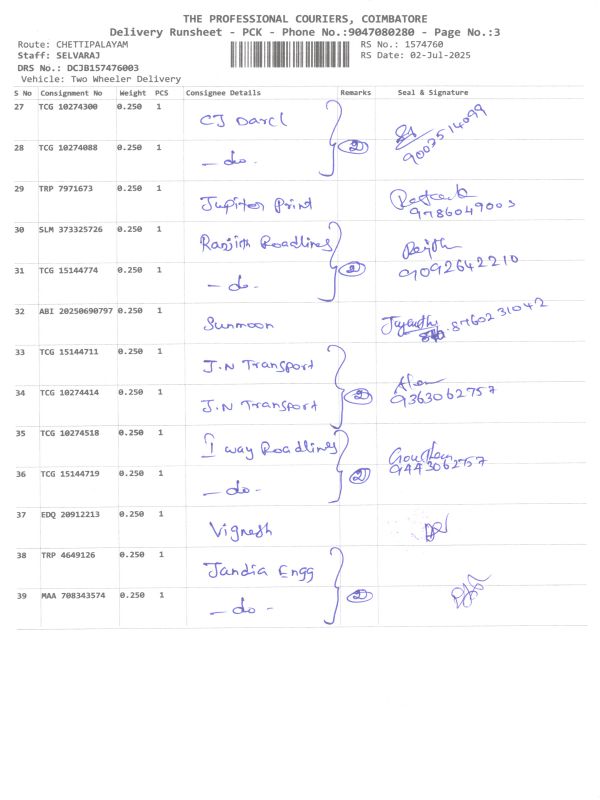 THE PROFESSIONAL COURIERS, COIMBATORE
Delivery Runsheet - PCK - Phone No.:9047080280 - Page No.:3
Route: CHETTIPALAYAM RS No.: 1574760
Staff: SELVARAJ RS Date: 02-Jul-2025
DRS No.: DCJB157476003
Vehicle: Two Wheeler Delivery
S No Consignment No Weight PCS Consignee Details Remarks Seal & Signature
27 TCG 10274300 0.250 1 CJ Darcl
28 TCG 10274088 0.250 1 - do - 2 9003514099
29 TRP 7971673 0.250 1 Jupiter Print 9786049003
30 SLM 373325726 0.250 1 Ranjith Roadlines
31 TCG 15144774 0.250 1 - do - 2 9092642210
32 ABI 20250690797 0.250 1 Sunmoon Jayanthi 8760231042
33 TCG 15144711 0.250 1 J.N Transport
34 TCG 10274414 0.250 1 J.N Transport 2 9363062757
35 TCG 10274518 0.250 1 I way Roadlines
36 TCG 15144719 0.250 1 - do - 2 9443062757
37 EDQ 20912213 0.250 1 Vignesh
38 TRP 4649126 0.250 1 Jandia Engg
39 MAA 708343574 0.250 1 - do - 2